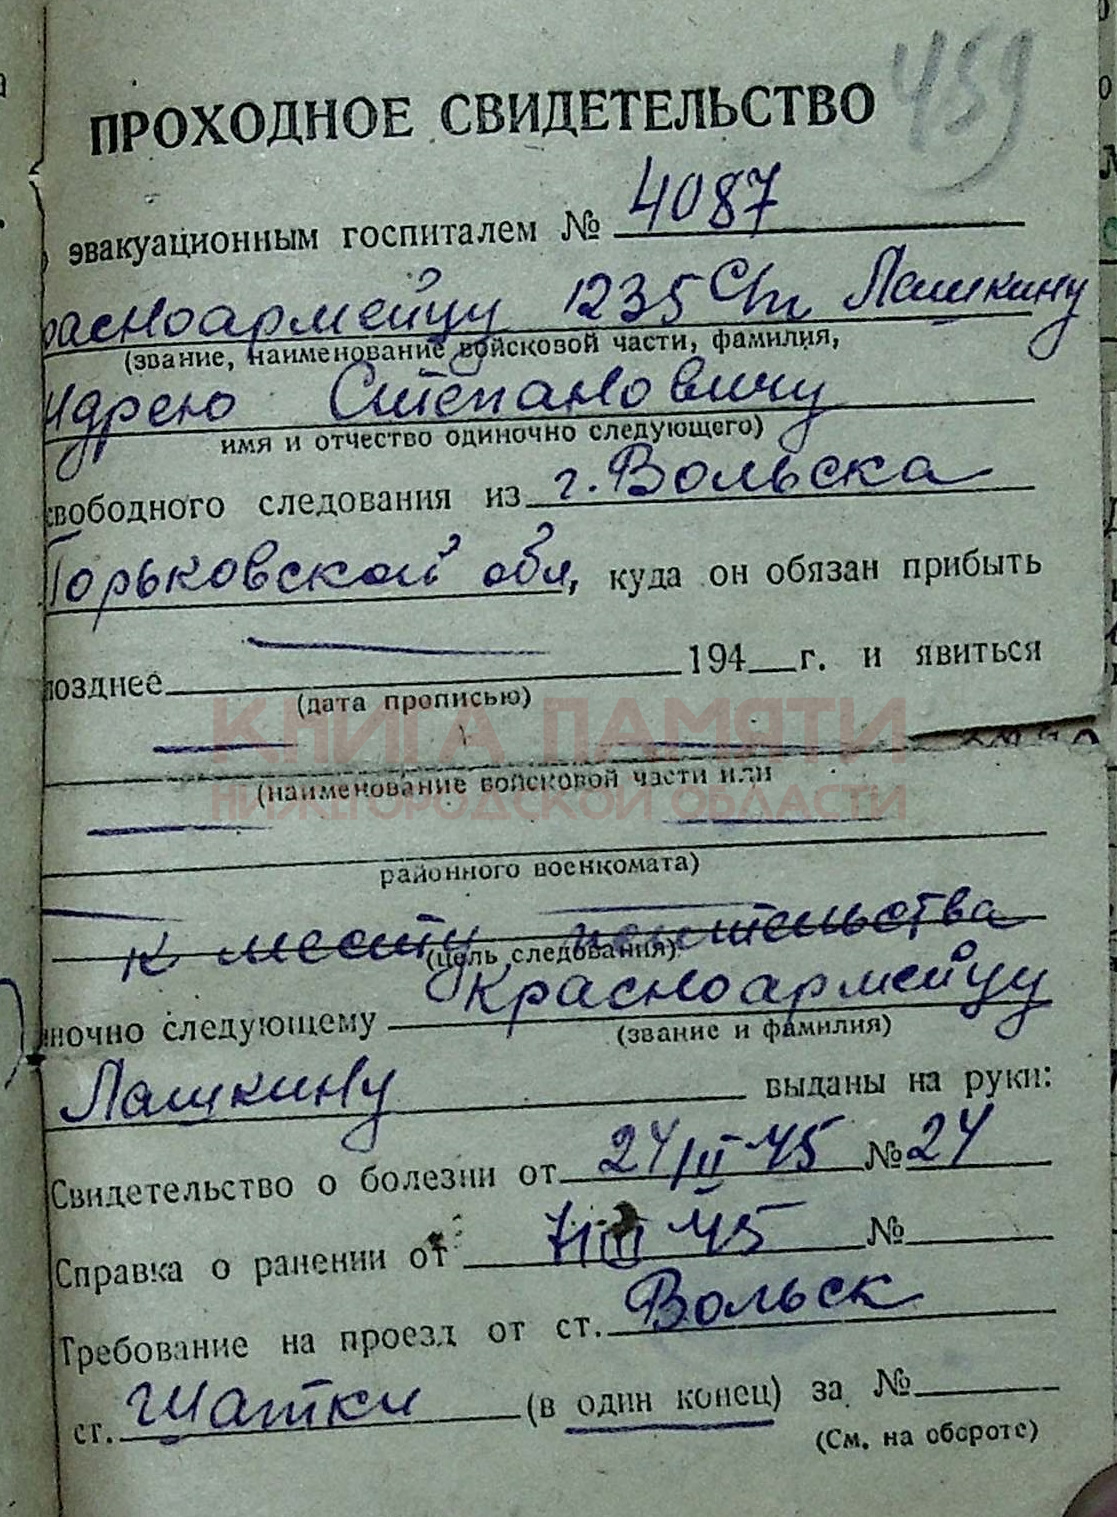 459
ПРОХОДНОЕ СВИДЕТЕЛЬСТВО
эвакуационным госпиталем № 4087
расноармейцу 1235 Сп Лашкину
(звание, наименование войсковой части, фамилия,
ндрею Степановичу
имя и отчество одиночно следующего)
свободного следования из г. Вольска
Горьковской обл, куда он обязан прибыть
позднее 194 г. и явиться
(дата прописью)
КНИГА ПАМЯТИ
(наименование войсковой части или
НИЖЕГОРОДСКОЙ ОБЛАСТИ
районного военкомата)
к месту жительства
(цель следования)
ночно следующему Красноармейцу
(звание и фамилия)
Лашкину выданы на руки:
Свидетельство о болезни от 24/II-45 №24
Справка о ранении от 7/III 45 №
Требование на проезд от ст. Вольск
ст. Шатки (в один конец) за №
(См. на обороте)